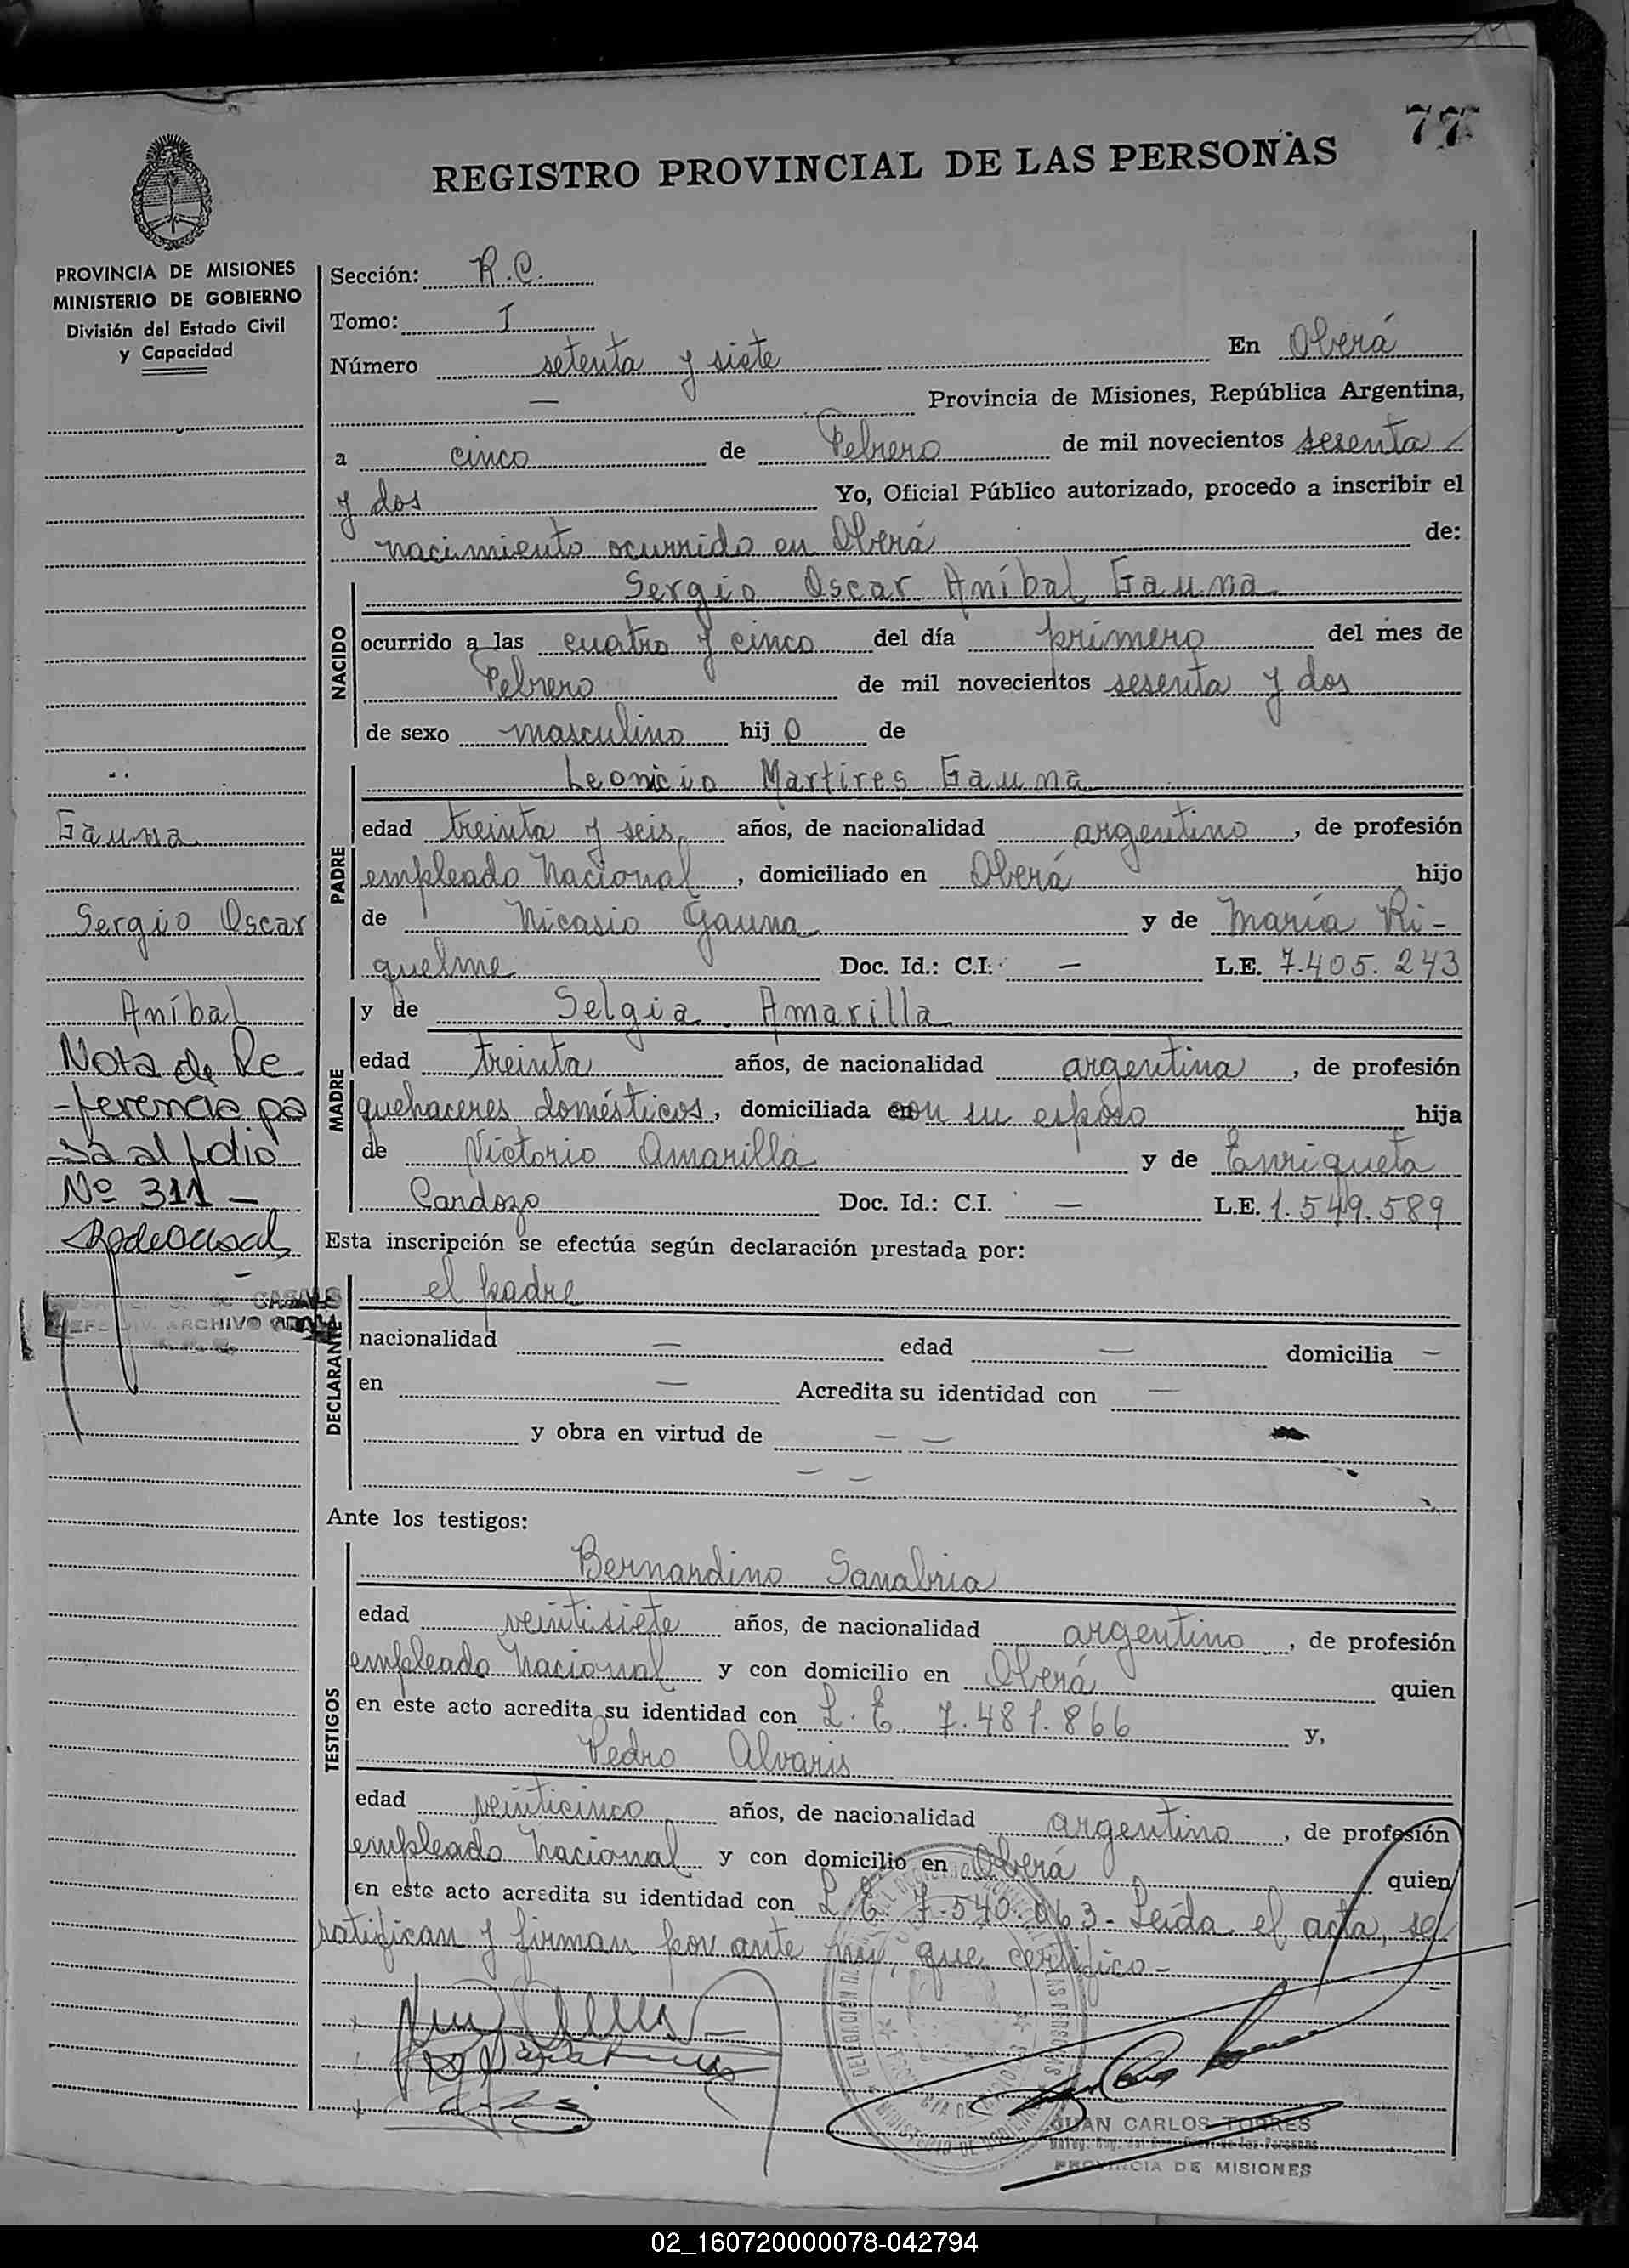 77
REGISTRO PROVINCIAL DE LAS PERSONAS
PROVINCIA DE MISIONES
MINISTERIO DE GOBIERNO
División del Estado Civil
y Capacidad
Gauna
Sergio Oscar
Aníbal
Nota de Re
-ferencia pa
-sa al folio
Nº 311 -
CASALS
ARCHIVO
Sección: R.C.
Tomo: I
Número setenta y siete En Oberá
— Provincia de Misiones, República Argentina,
a cinco de Febrero de mil novecientos sesenta
y dos Yo, Oficial Público autorizado, procedo a inscribir el
nacimiento ocurrido en Oberá de:
NACIDO
Sergio Oscar Aníbal Gauna
ocurrido a las cuatro y cinco del día primero del mes de
Febrero de mil novecientos sesenta y dos
de sexo masculino hij o de
PADRE
Leonicio Martires Gauna
edad treinta y seis años, de nacionalidad argentino, de profesión
empleado Nacional, domiciliado en Oberá hijo
de Nicasio Gauna y de María Ri-
quelme Doc. Id.: C.I. — L.E. 7.405.243
MADRE
y de Selgia Amarilla
edad treinta años, de nacionalidad argentina, de profesión
quehaceres domésticos, domiciliada con su esposo hija
de Victorio Amarilla y de Enriqueta
Cardozo Doc. Id.: C.I. — L.E. 1.549.589
Esta inscripción se efectúa según declaración prestada por:
DECLARANTE
el padre
nacionalidad — edad — domicilia —
en — Acredita su identidad con —
y obra en virtud de — —
— —
Ante los testigos:
TESTIGOS
Bernardino Sanabria
edad veintisiete años, de nacionalidad argentino, de profesión
empleado Nacional y con domicilio en Oberá quien
en este acto acredita su identidad con L.E. 7.481.866 y,
Pedro Alvaris
edad veinticinco años, de nacionalidad argentino, de profesión
empleado Nacional y con domicilio en Oberá quien
en este acto acredita su identidad con L.E. 7.540.063- Leída el acta, se
ratifican y firman por ante mí, que certifico-
JUAN CARLOS TORRES
PROVINCIA DE MISIONES
02_160720000078-042794